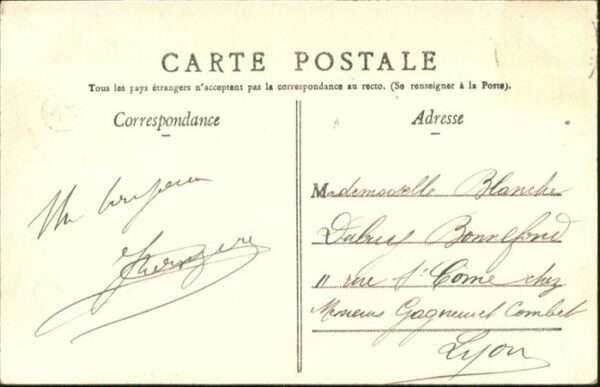 CARTE POSTALE
Tous les pays étrangers n'acceptent pas la correspondance au recto. (Se renseigner à la Poste).
Correspondance
Adresse
Un
Mademoiselle Blanche
Bonnefond
11 rue St Côme chez
Messieurs Combet
Lyon